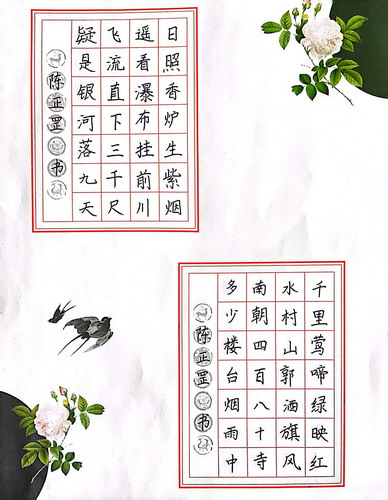 日照香炉生紫烟
遥看瀑布挂前川
飞流直下三千尺
疑是银河落九天
陈正罡书
千里莺啼绿映红
水村山郭酒旗风
南朝四百八十寺
多少楼台烟雨中
陈正罡书